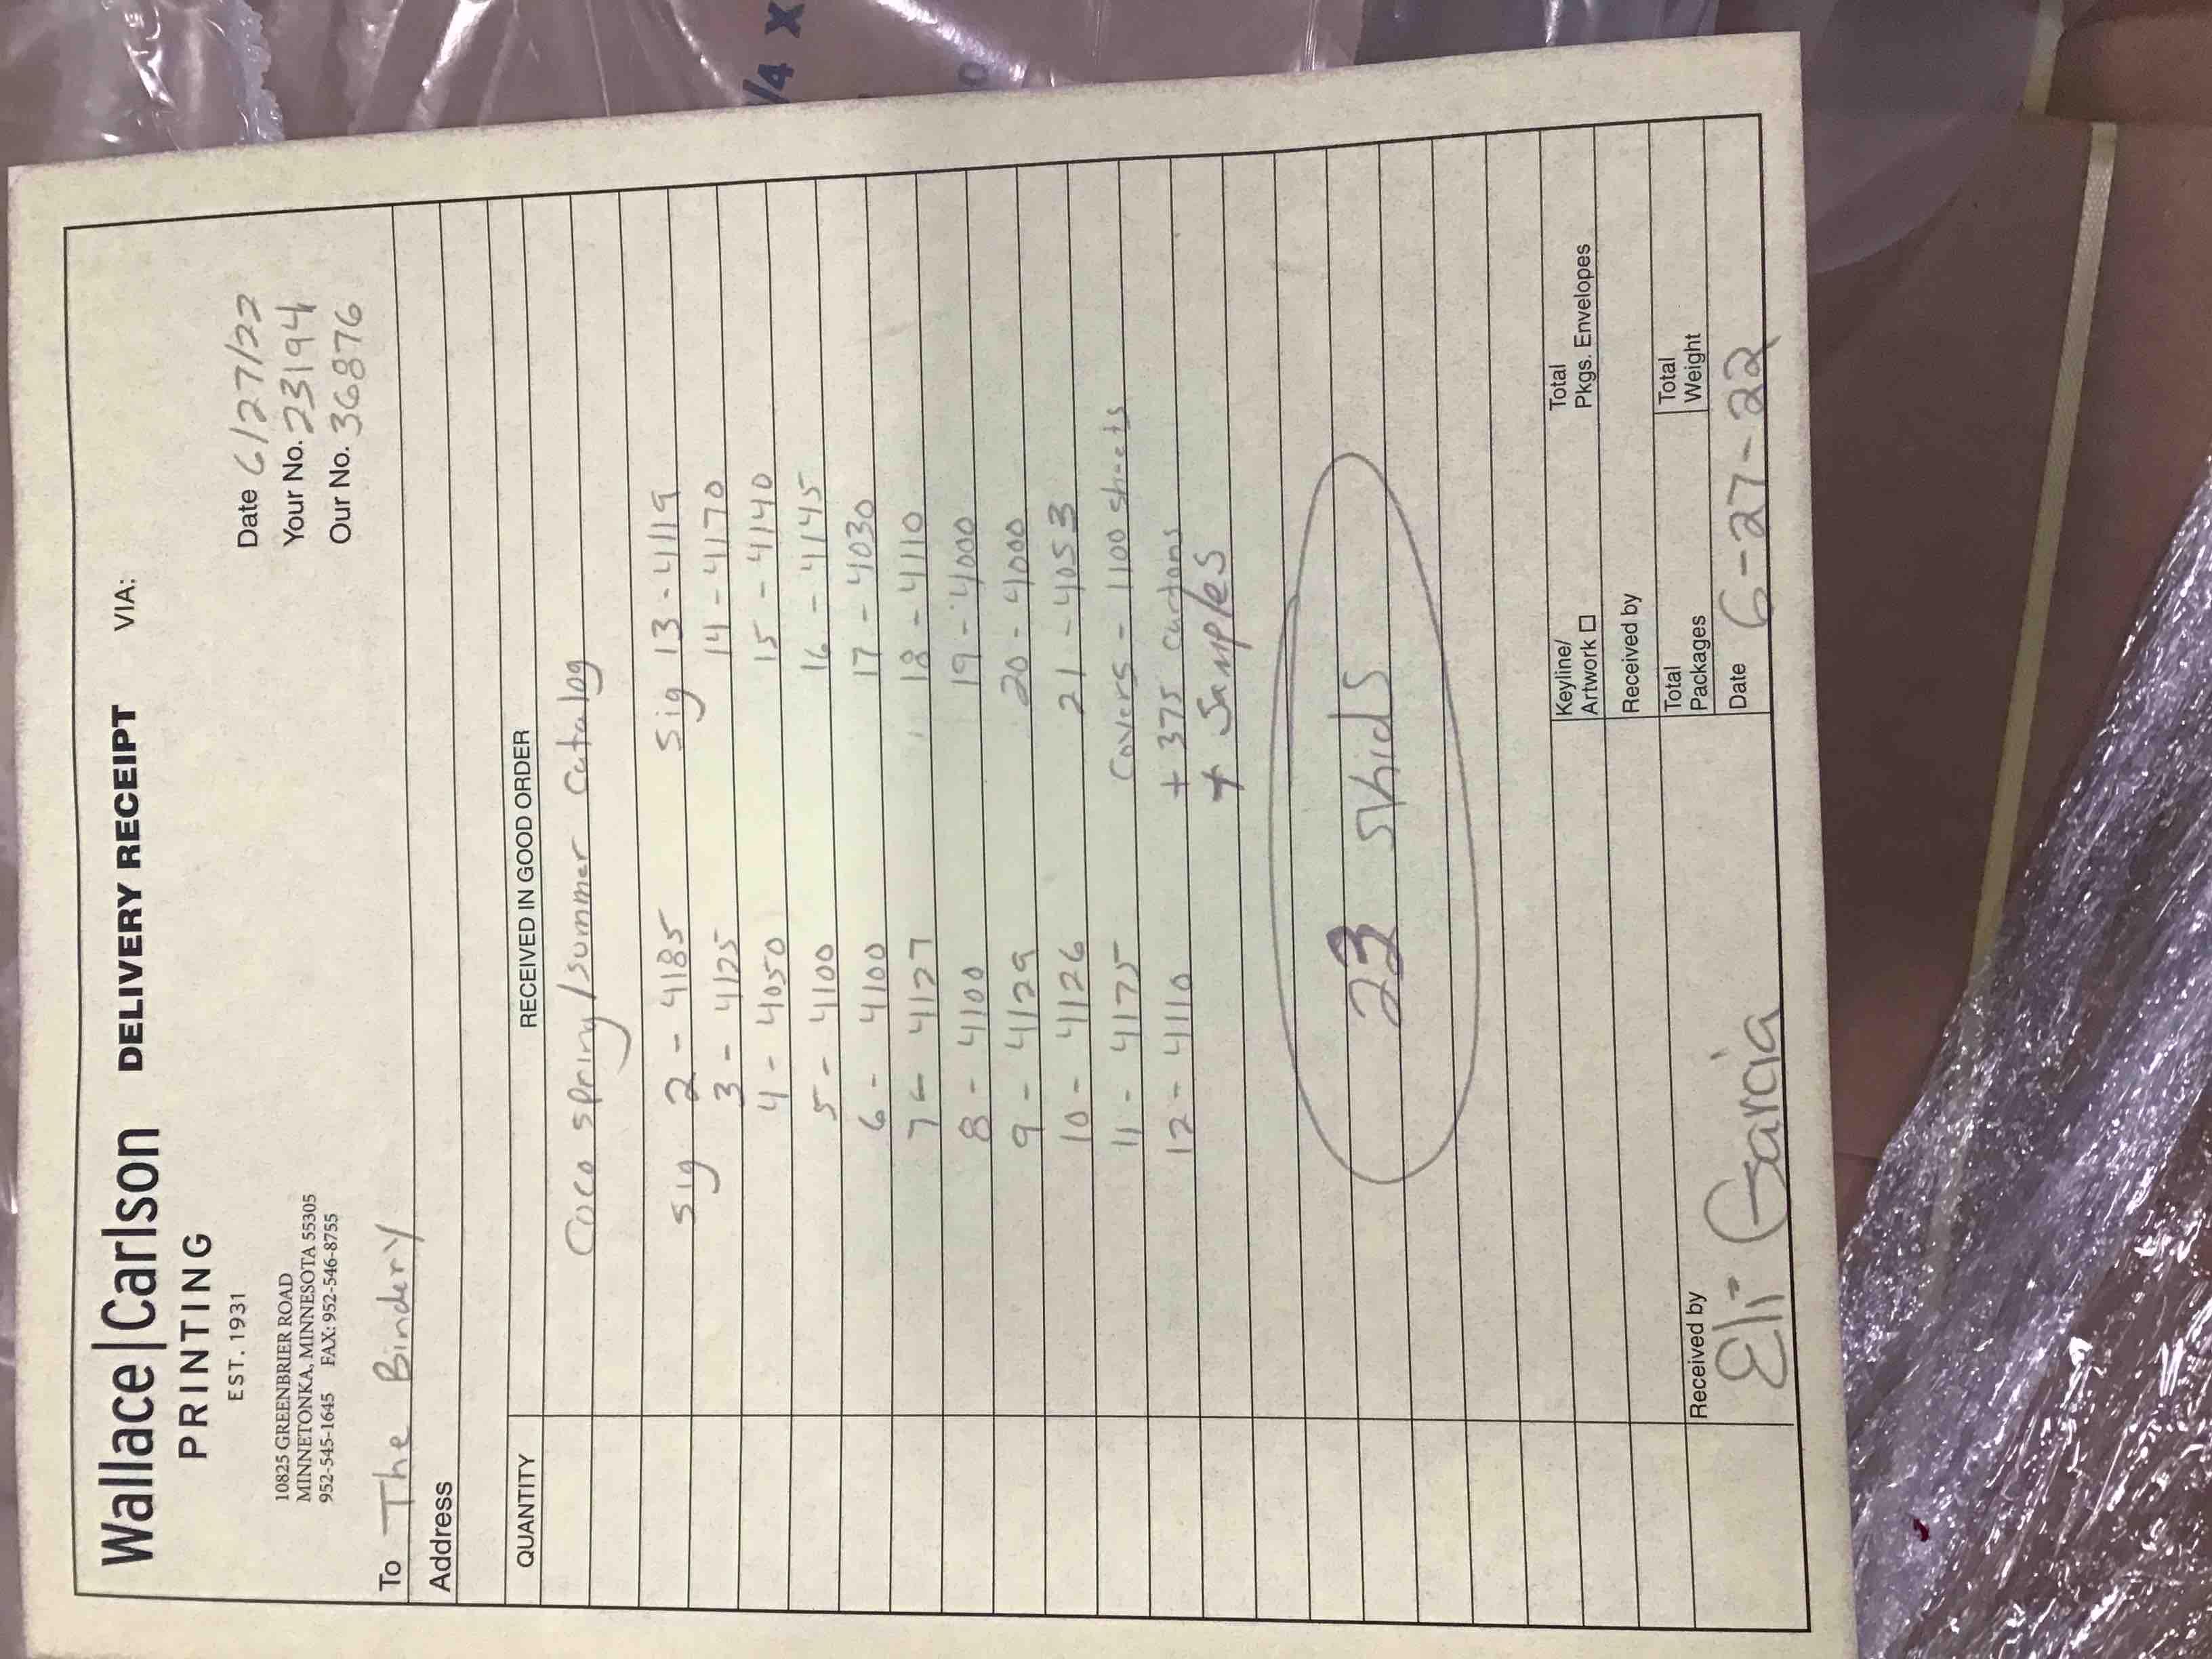 Wallace|Carlson DELIVERY RECEIPT VIA:
PRINTING
EST. 1931
10825 GREENBRIER ROAD
MINNETONKA, MINNESOTA 55305
952-545-1645 FAX: 952-546-8755
Date 6/27/22
Your No. 23194
Our No. 36876
To The Bindery
Address
QUANTITY RECEIVED IN GOOD ORDER
Coco spring/summer catalog
sig 2 - 4185 sig 13 - 4119
3 - 4125 14 - 4170
4 - 4050 15 - 4140
5 - 4100 16 - 4145
6 - 4100 17 - 4030
7 - 4127 18 - 4110
8 - 4100 19 - 4000
9 - 4129 20 - 4000
10 - 4126 21 - 4053
11 - 4175 Covers - 1100 sheets
12 - 4110 + 375 cartons
+ Samples
23 skids
Keyline/
Artwork □
Total
Pkgs. Envelopes
Received by
Total
Packages
Total
Weight
Received by Eli Garcia
Date 6-27-22
/4 X